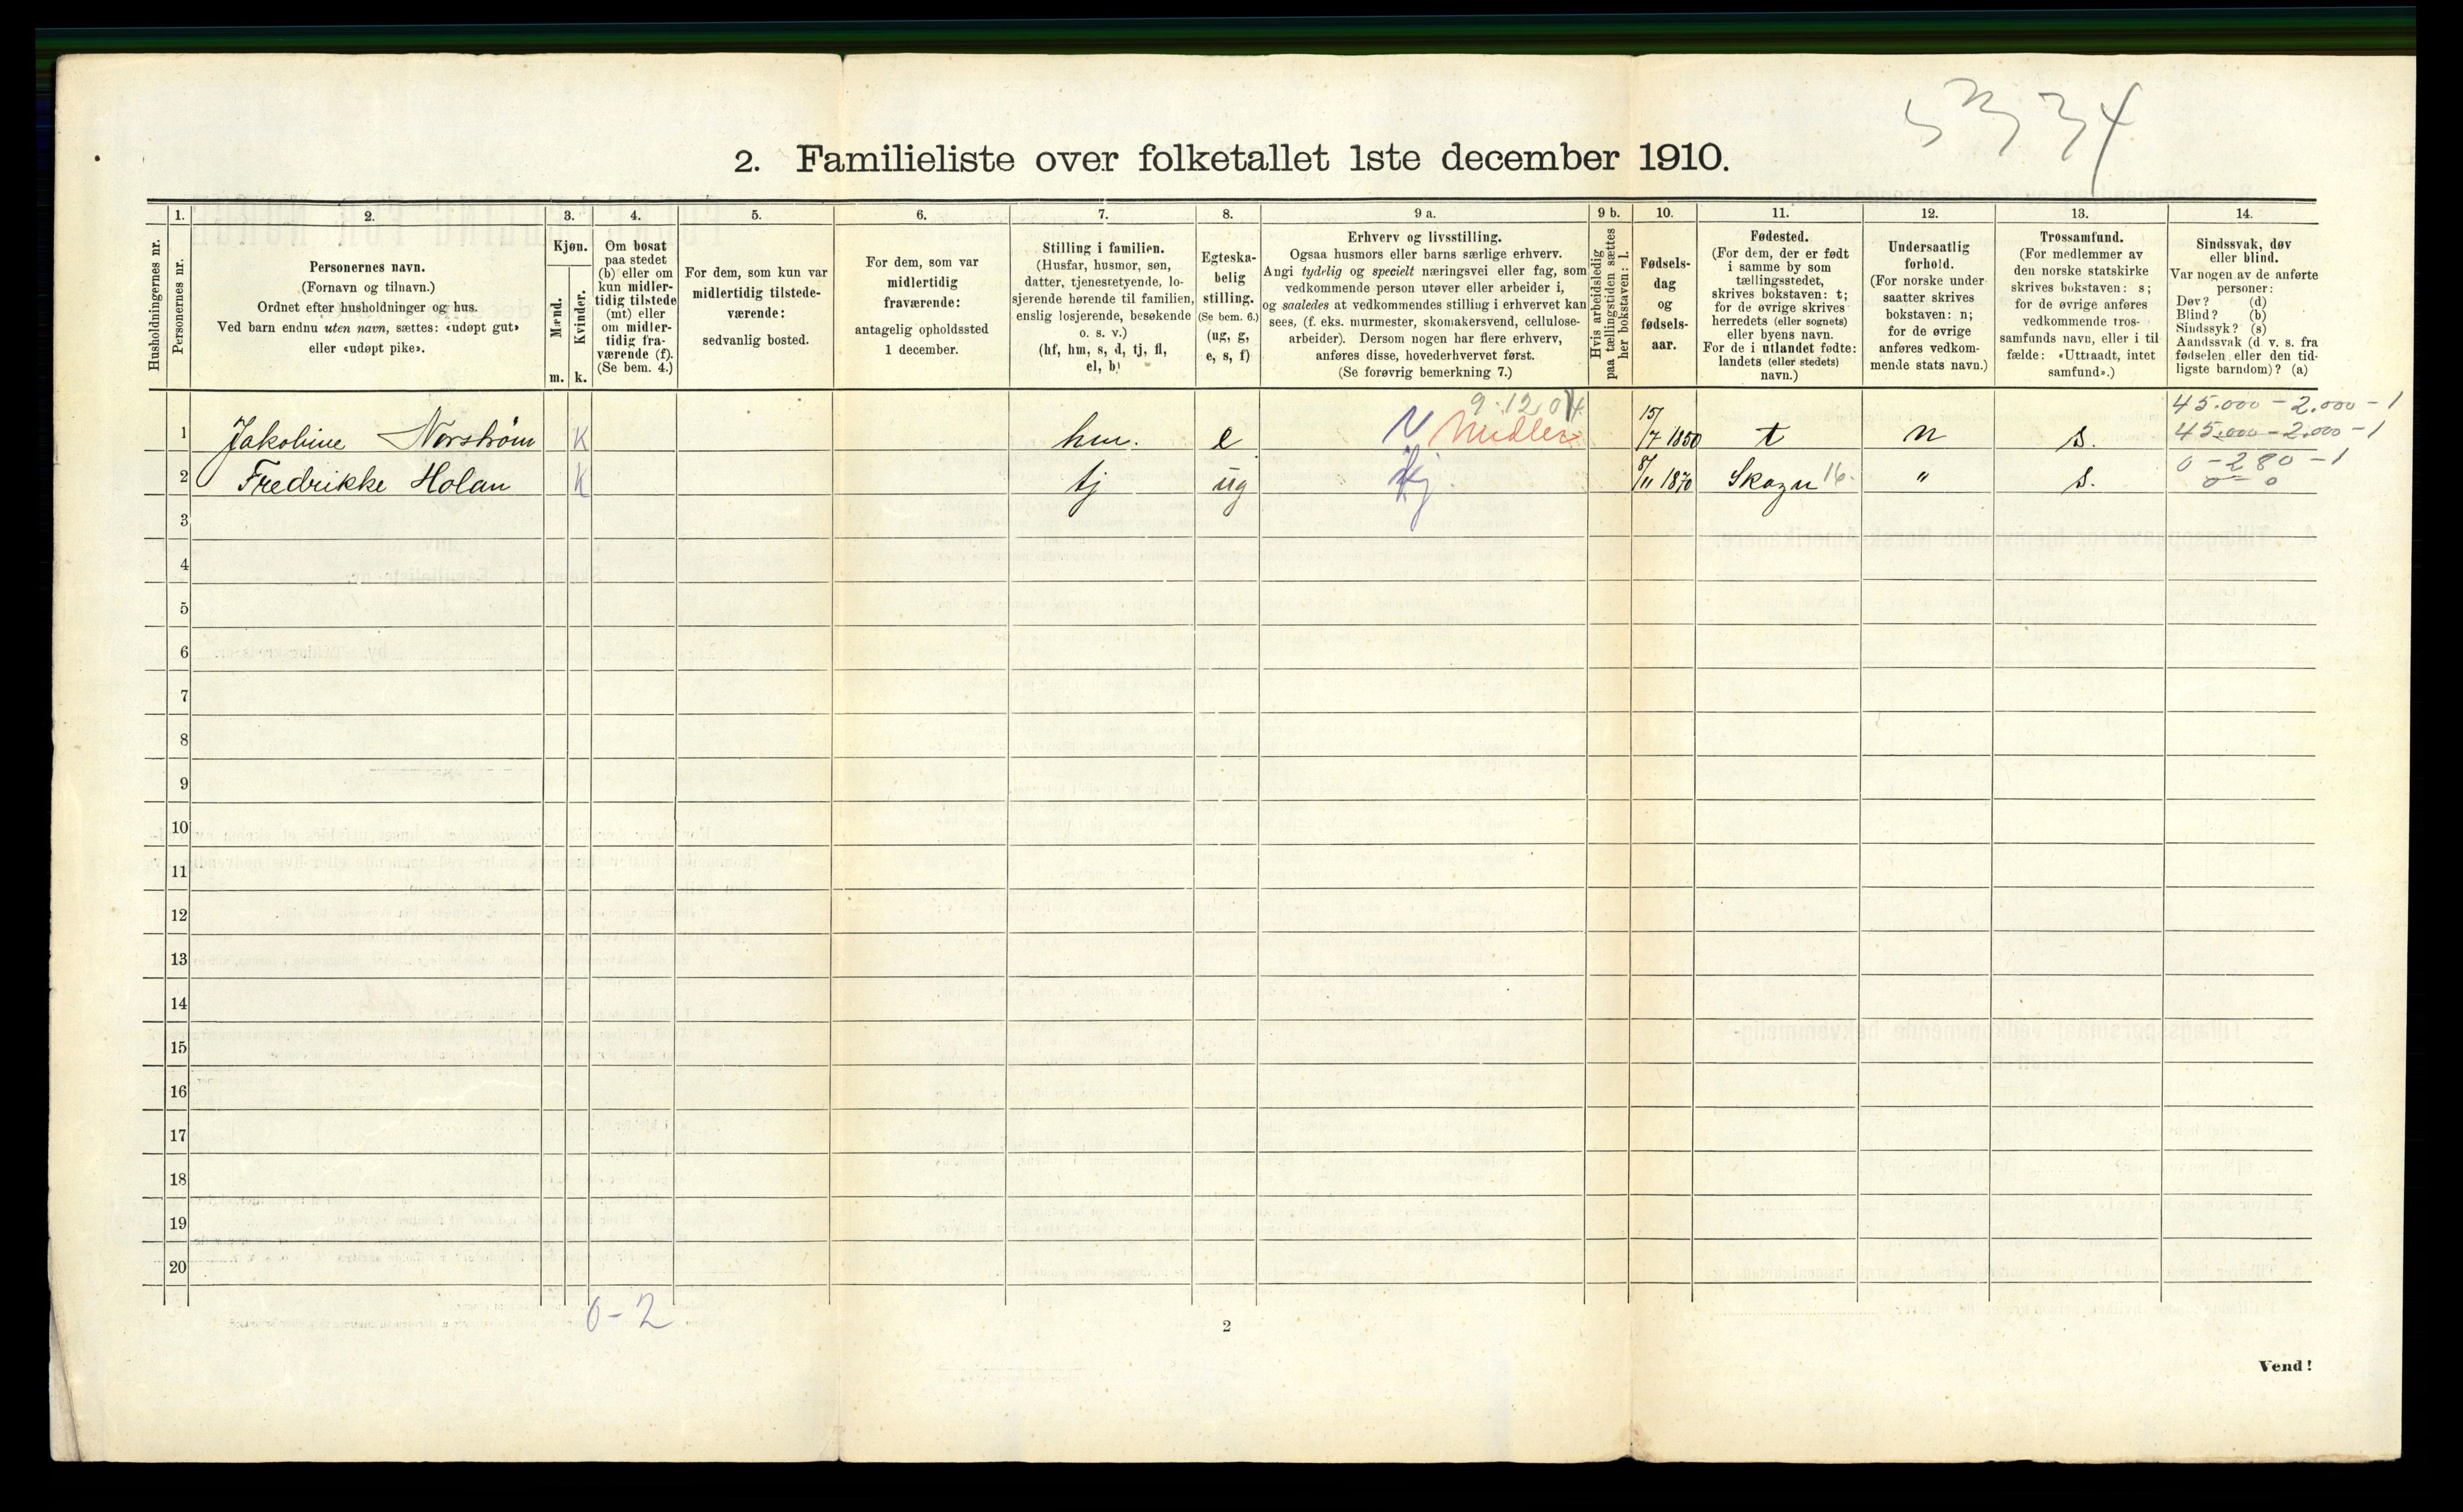 5334
2. Familieliste over folketallet 1ste december 1910.
Husholdningernes nr.
1.
Personernes nr.
2.
Personernes navn.
(Fornavn og tilnavn.)
Ordnet efter husholdninger og hus.
Ved barn endnu uten navn, sættes: «udøpt gut»
eller «udøpt pike».
3.
Kjøn.
Mænd.
Kvinder.
m. k.
4.
Om bosat
paa stedet
(b) eller om
kun midler-
tidig tilstede
(mt) eller
om midler-
tidig fra-
værende (f).
(Se bem. 4.)
5.
For dem, som kun var
midlertidig tilstede-
værende:
sedvanlig bosted.
6.
For dem, som var
midlertidig
fraværende:
antagelig opholdssted
1 december.
7.
Stilling i familien.
(Husfar, husmor, søn,
datter, tjenestetyende, lo-
sjerende hørende til familien,
enslig losjerende, besøkende
o. s. v.)
(hf, hm, s, d, tj, fl,
el, b)
8.
Egteska-
belig
stilling.
(Se bem. 6.)
(ug, g,
e, s, f)
9 a.
Erhverv og livsstilling.
Ogsaa husmors eller barns særlige erhverv.
Angi tydelig og specielt næringsvei eller fag, som
vedkommende person utøver eller arbeider i,
og saaledes at vedkommendes stilling i erhvervet kan
sees, (f. eks. murmester, skomakersvend, cellulose-
arbeider). Dersom nogen har flere erhverv,
anføres disse, hovederhvervet først.
(Se forøvrig bemerkning 7.)
9 b.
Hvis arbeidsledig
paa tællingstiden sættes
her bokstaven: l.
10.
Fødsels-
dag
og
fødsels-
aar.
11.
Fødested.
(For dem, der er født
i samme by som
tællingsstedet,
skrives bokstaven: t;
for de øvrige skrives
herredets (eller sognets)
eller byens navn.
For de i utlandet fødte:
landets (eller stedets)
navn.)
12.
Undersaatlig
forhold.
(For norske under
saatter skrives
bokstaven: n;
for de øvrige
anføres vedkom-
mende stats navn.)
13.
Trossamfund.
(For medlemmer av
den norske statskirke
skrives bokstaven: s;
for de øvrige anføres
vedkommende tros-
samfunds navn, eller i til
fælde: «Uttraadt, intet
samfund».)
14.
Sindssvak, døv
eller blind.
Var nogen av de anførte
personer:
Døv? (d)
Blind? (b)
Sindssyk? (s)
Aandssvak (d. v. s. fra
fødselen eller den tid-
ligste barndom)? (a)
9.12.04 45.000 - 2.000 - 1
1 Jakobine Norstrøm K hm. e N Midler 15/7 1850 t n s. 45.000 - 2.000 - 1
0 - 280 - 1
2 Fredrikke Holan K tj ug tj 8/11 1870 Skogn 16. " s. 0 - 0
3
4
5
6
7
8
9
10
11
12
13
14
15
16
17
18
19
20
0 - 2
2
Vend!